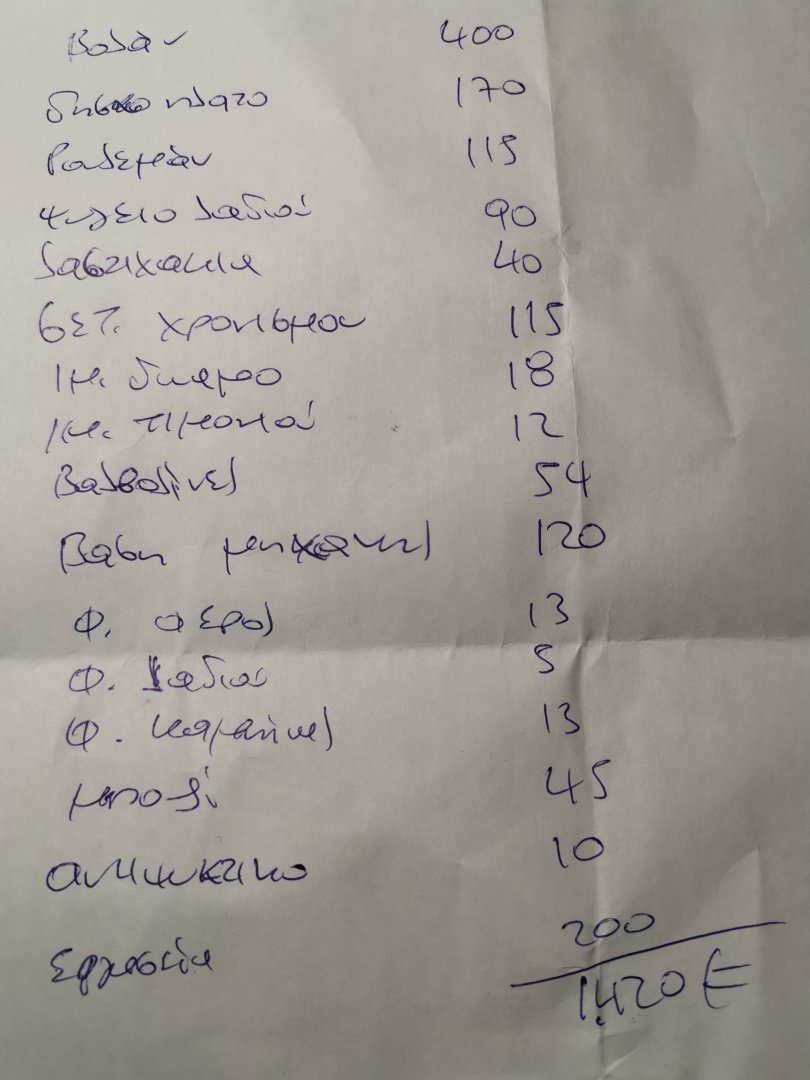 Βολάν 400
δησκο πλατο 170
Ρουλεμάν 115
ψυγειο λαδιού 90
λαστιχακια 40
σετ. χρονισμου 115
ιμ. δυναμο 18
ιμ. τιμονιού 12
Βαλβολίνες 54
Βαση μηχανης 120
Φ. αερος 13
Φ. λαδιού 5
Φ. καμπίνας 13
μπουζί 45
αντιψυκτικο 10
εργασεία 200
1.420 €